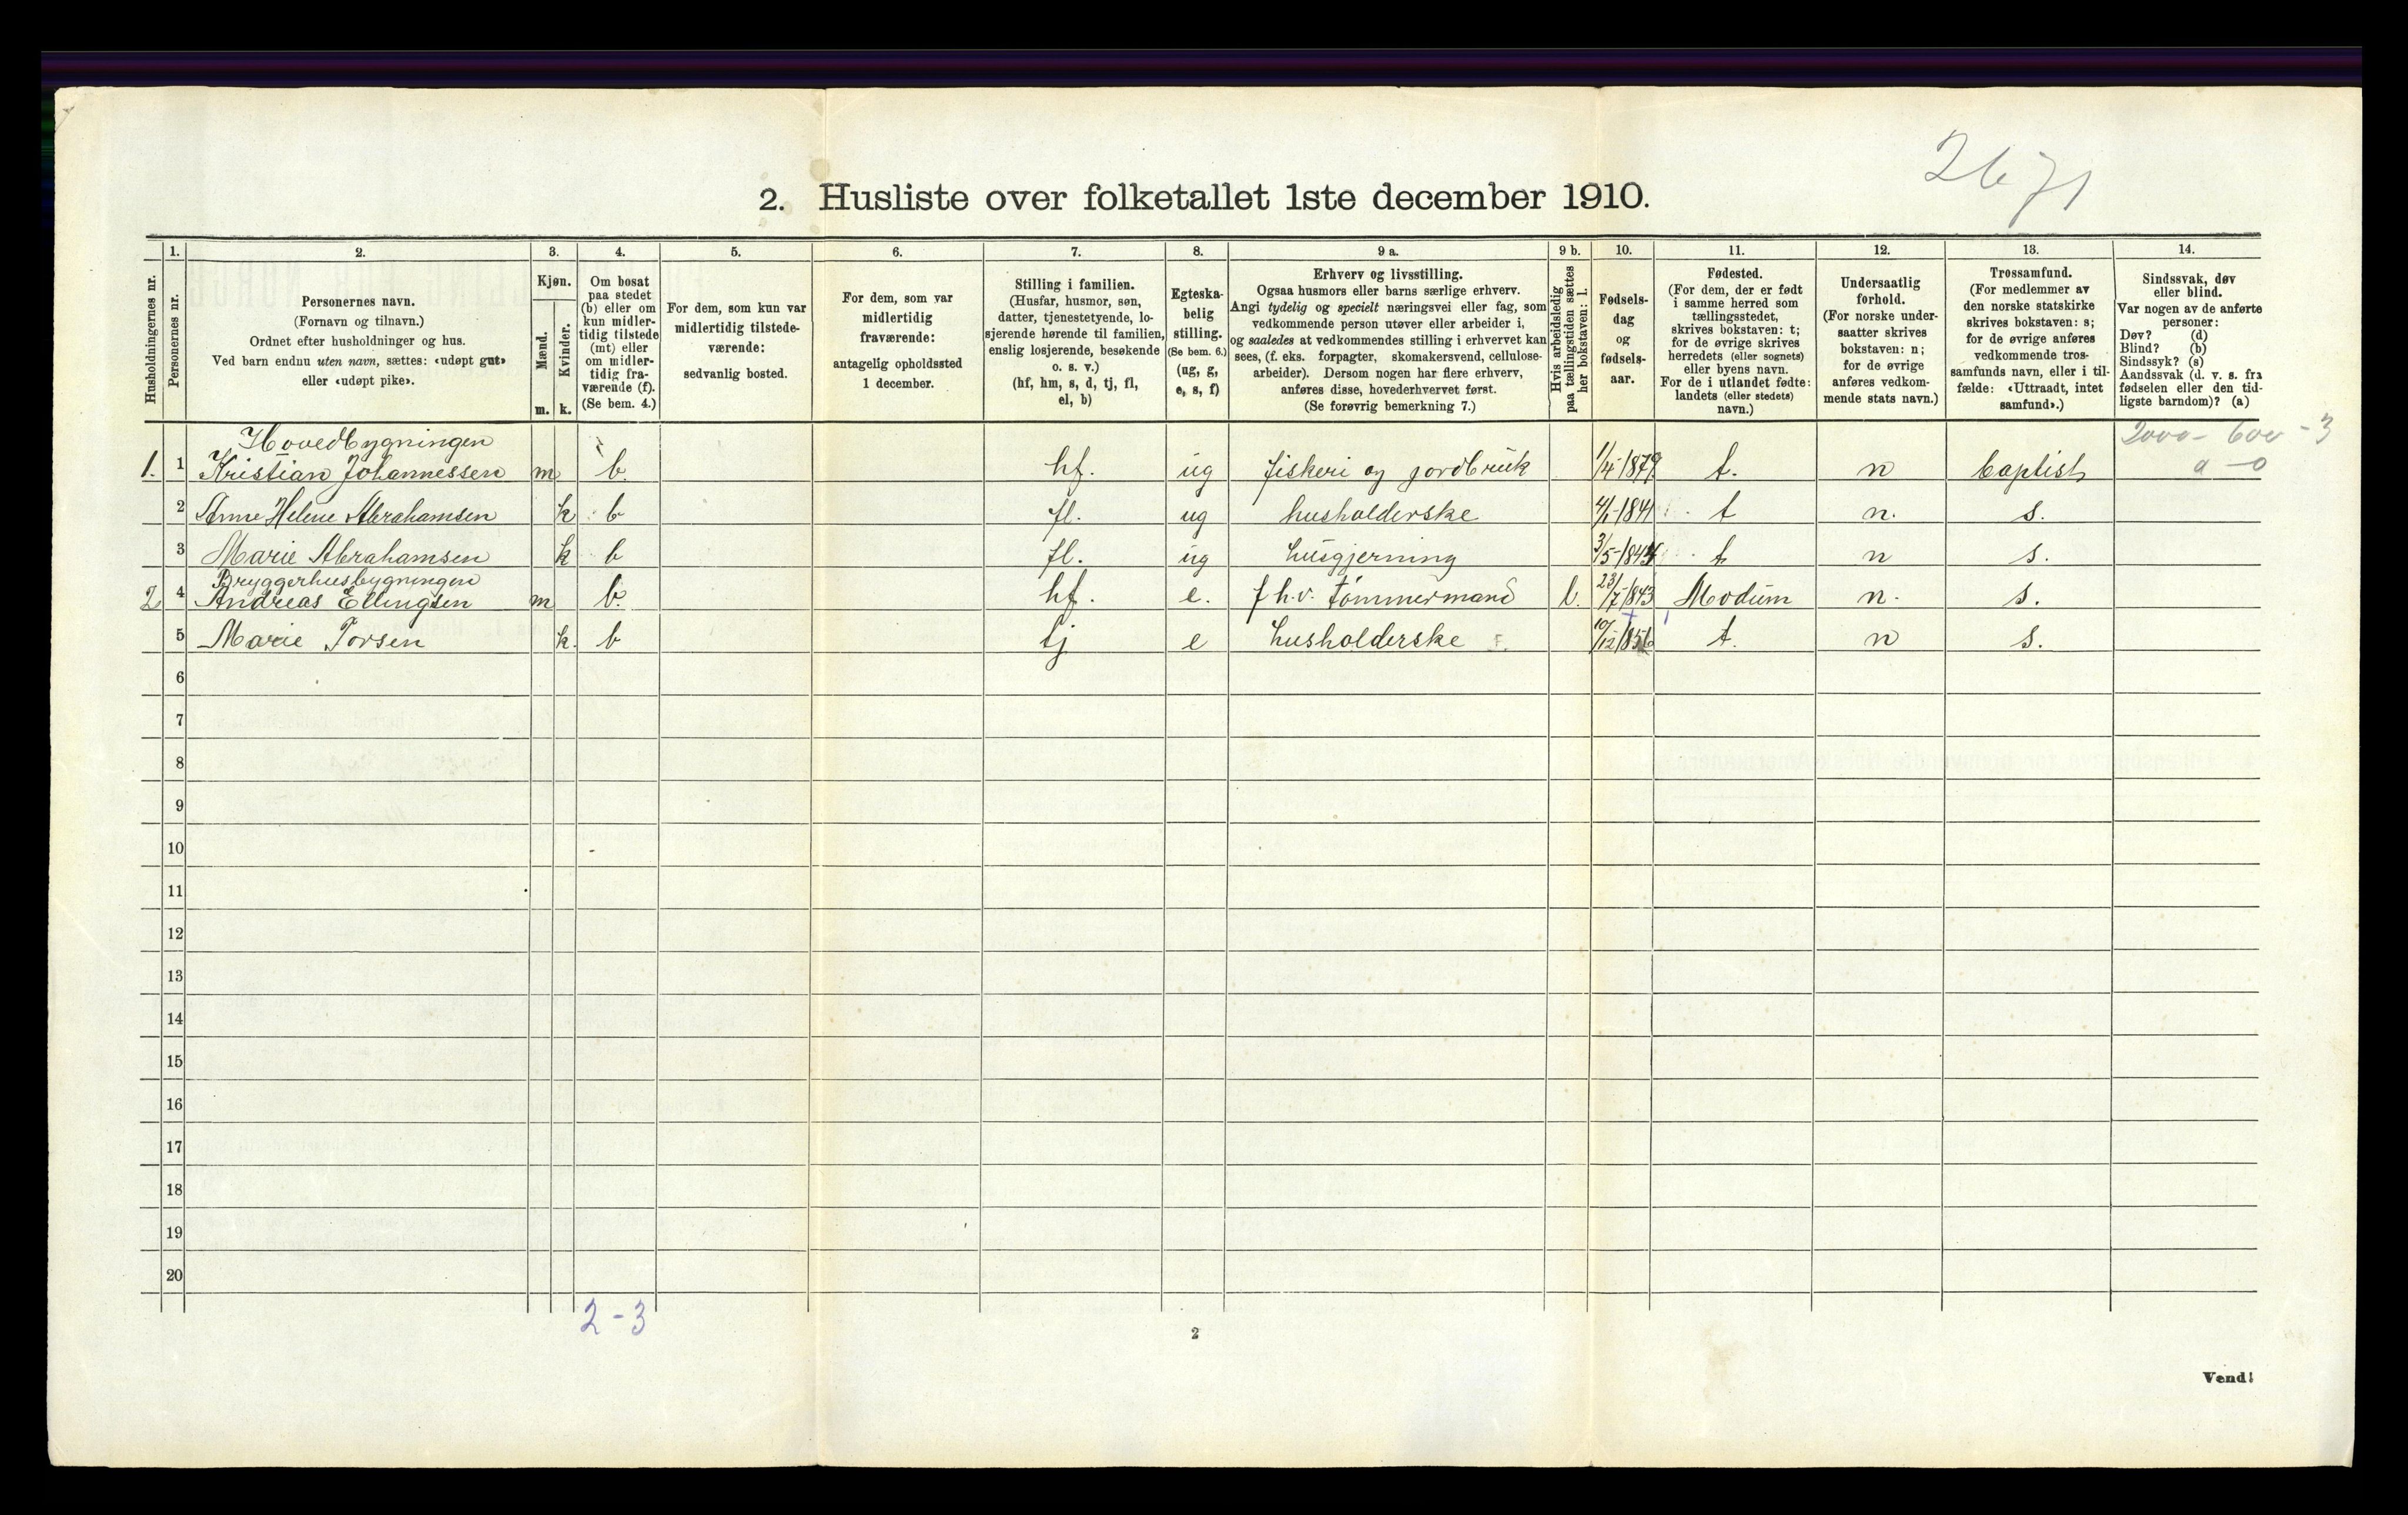 2671
2. Husliste over folketallet 1ste december 1910.
Husholdningernes nr.
1.
Personernes nr.
2.
Personernes navn.
(Fornavn og tilnavn.)
Ordnet efter husholdninger og hus.
Ved barn endnu uten navn, sættes: «udøpt gut»
eller «udøpt pike».
3.
Kjøn.
Mænd.
Kvinder.
m. k.
4.
Om bosat
paa stedet
(b) eller om
kun midler-
tidig tilstede
(mt) eller
om midler-
tidig fra-
værende (f).
(Se bem. 4.)
5.
For dem, som kun var
midlertidig tilstede-
værende:
sedvanlig bosted.
6.
For dem, som var
midlertidig
fraværende:
antagelig opholdssted
1 december.
7.
Stilling i familien.
(Husfar, husmor, søn,
datter, tjenestetyende, lo-
sjerende hørende til familien,
enslig losjerende, besøkende
o. s. v.)
(hf, hm, s, d, tj, fl,
el, b)
8.
Egteska-
belig
stilling.
(Se bem. 6.)
(ug, g,
e, s, f)
9 a.
Erhverv og livsstilling.
Ogsaa husmors eller barns særlige erhverv.
Angi tydelig og specielt næringsvei eller fag, som
vedkommende person utøver eller arbeider i,
og saaledes at vedkommendes stilling i erhvervet kan
sees, (f. eks. forpagter, skomakersvend, cellulose-
arbeider). Dersom nogen har flere erhverv,
anføres disse, hovederhvervet først.
(Se forøvrig bemerkning 7.)
9 b.
Hvis arbeidsledig
paa tællingstiden sættes
her bokstaven: l.
10.
Fødsels-
dag
og
fødsels-
aar.
11.
Fødested.
(For dem, der er født
i samme herred som
tællingsstedet,
skrives bokstaven: t;
for de øvrige skrives
herredets (eller sognets)
eller byens navn.
For de i utlandet fødte:
landets (eller stedets)
navn.)
12.
Undersaatlig
forhold.
(For norske under-
saatter skrives
bokstaven: n;
for de øvrige
anføres vedkom-
mende stats navn.)
13.
Trossamfund.
(For medlemmer av
den norske statskirke
skrives bokstaven: s;
for de øvrige anføres
vedkommende tros-
samfunds navn, eller i til-
fælde: «Uttraadt, intet
samfund».)
14.
Sindssvak, døv
eller blind.
Var nogen av de anførte
personer:
Døv? (d)
Blind? (b)
Sindssyk? (s)
Aandssvak (d. v. s. fra
fødselen eller den tid-
ligste barndom)? (a)
2000 - 600 - 3
a - 0
Hovedbygningen
1. 1 Kristian Johannessen m b. hf. ug fiskeri og jordbruk 1/4-1879 t. n baptist
2 Anne Helene Abrahamsen k b fl. ug husholderske 4/1-1841 t n. s.
3 Marie Abrahamsen k b fl. ug husgjerning 3/5-1844 t n s.
Bryggerhusbygningen
2 4 Andreas Ellingsen m b. hf. e. f.h.v. tømmermand l. 23/7-1843 Modum n. s.
5 Marie Torsen k. b tj e husholderske 10/12 1856 t. n s.
6
7
8
9
10
11
12
13
14
15
16
17
18
19
20
2-3
2
Vend!